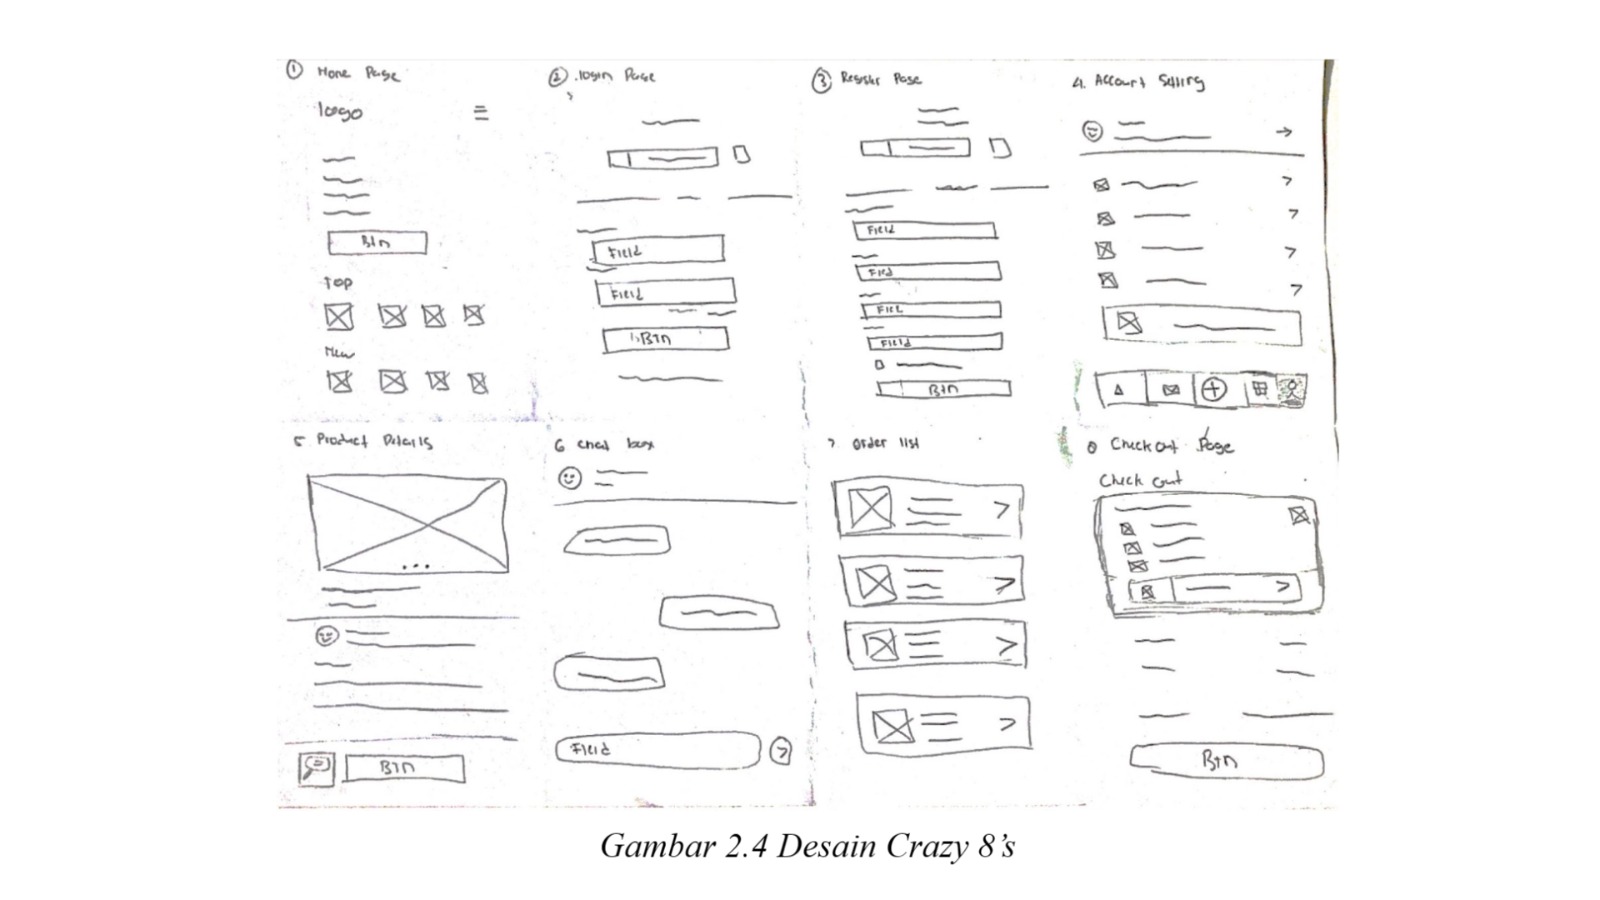 1 Home Page
logo
Btn
Top
New
2 .login Page
Field
Field
Btn
3 Register Page
Field
Field
Field
Field
Btn
4. Account Setting
5 Product Details
Btn
6 chat box
Field
7 order list
8 Checkout Page
Check out
Btn
Gambar 2.4 Desain Crazy 8’s